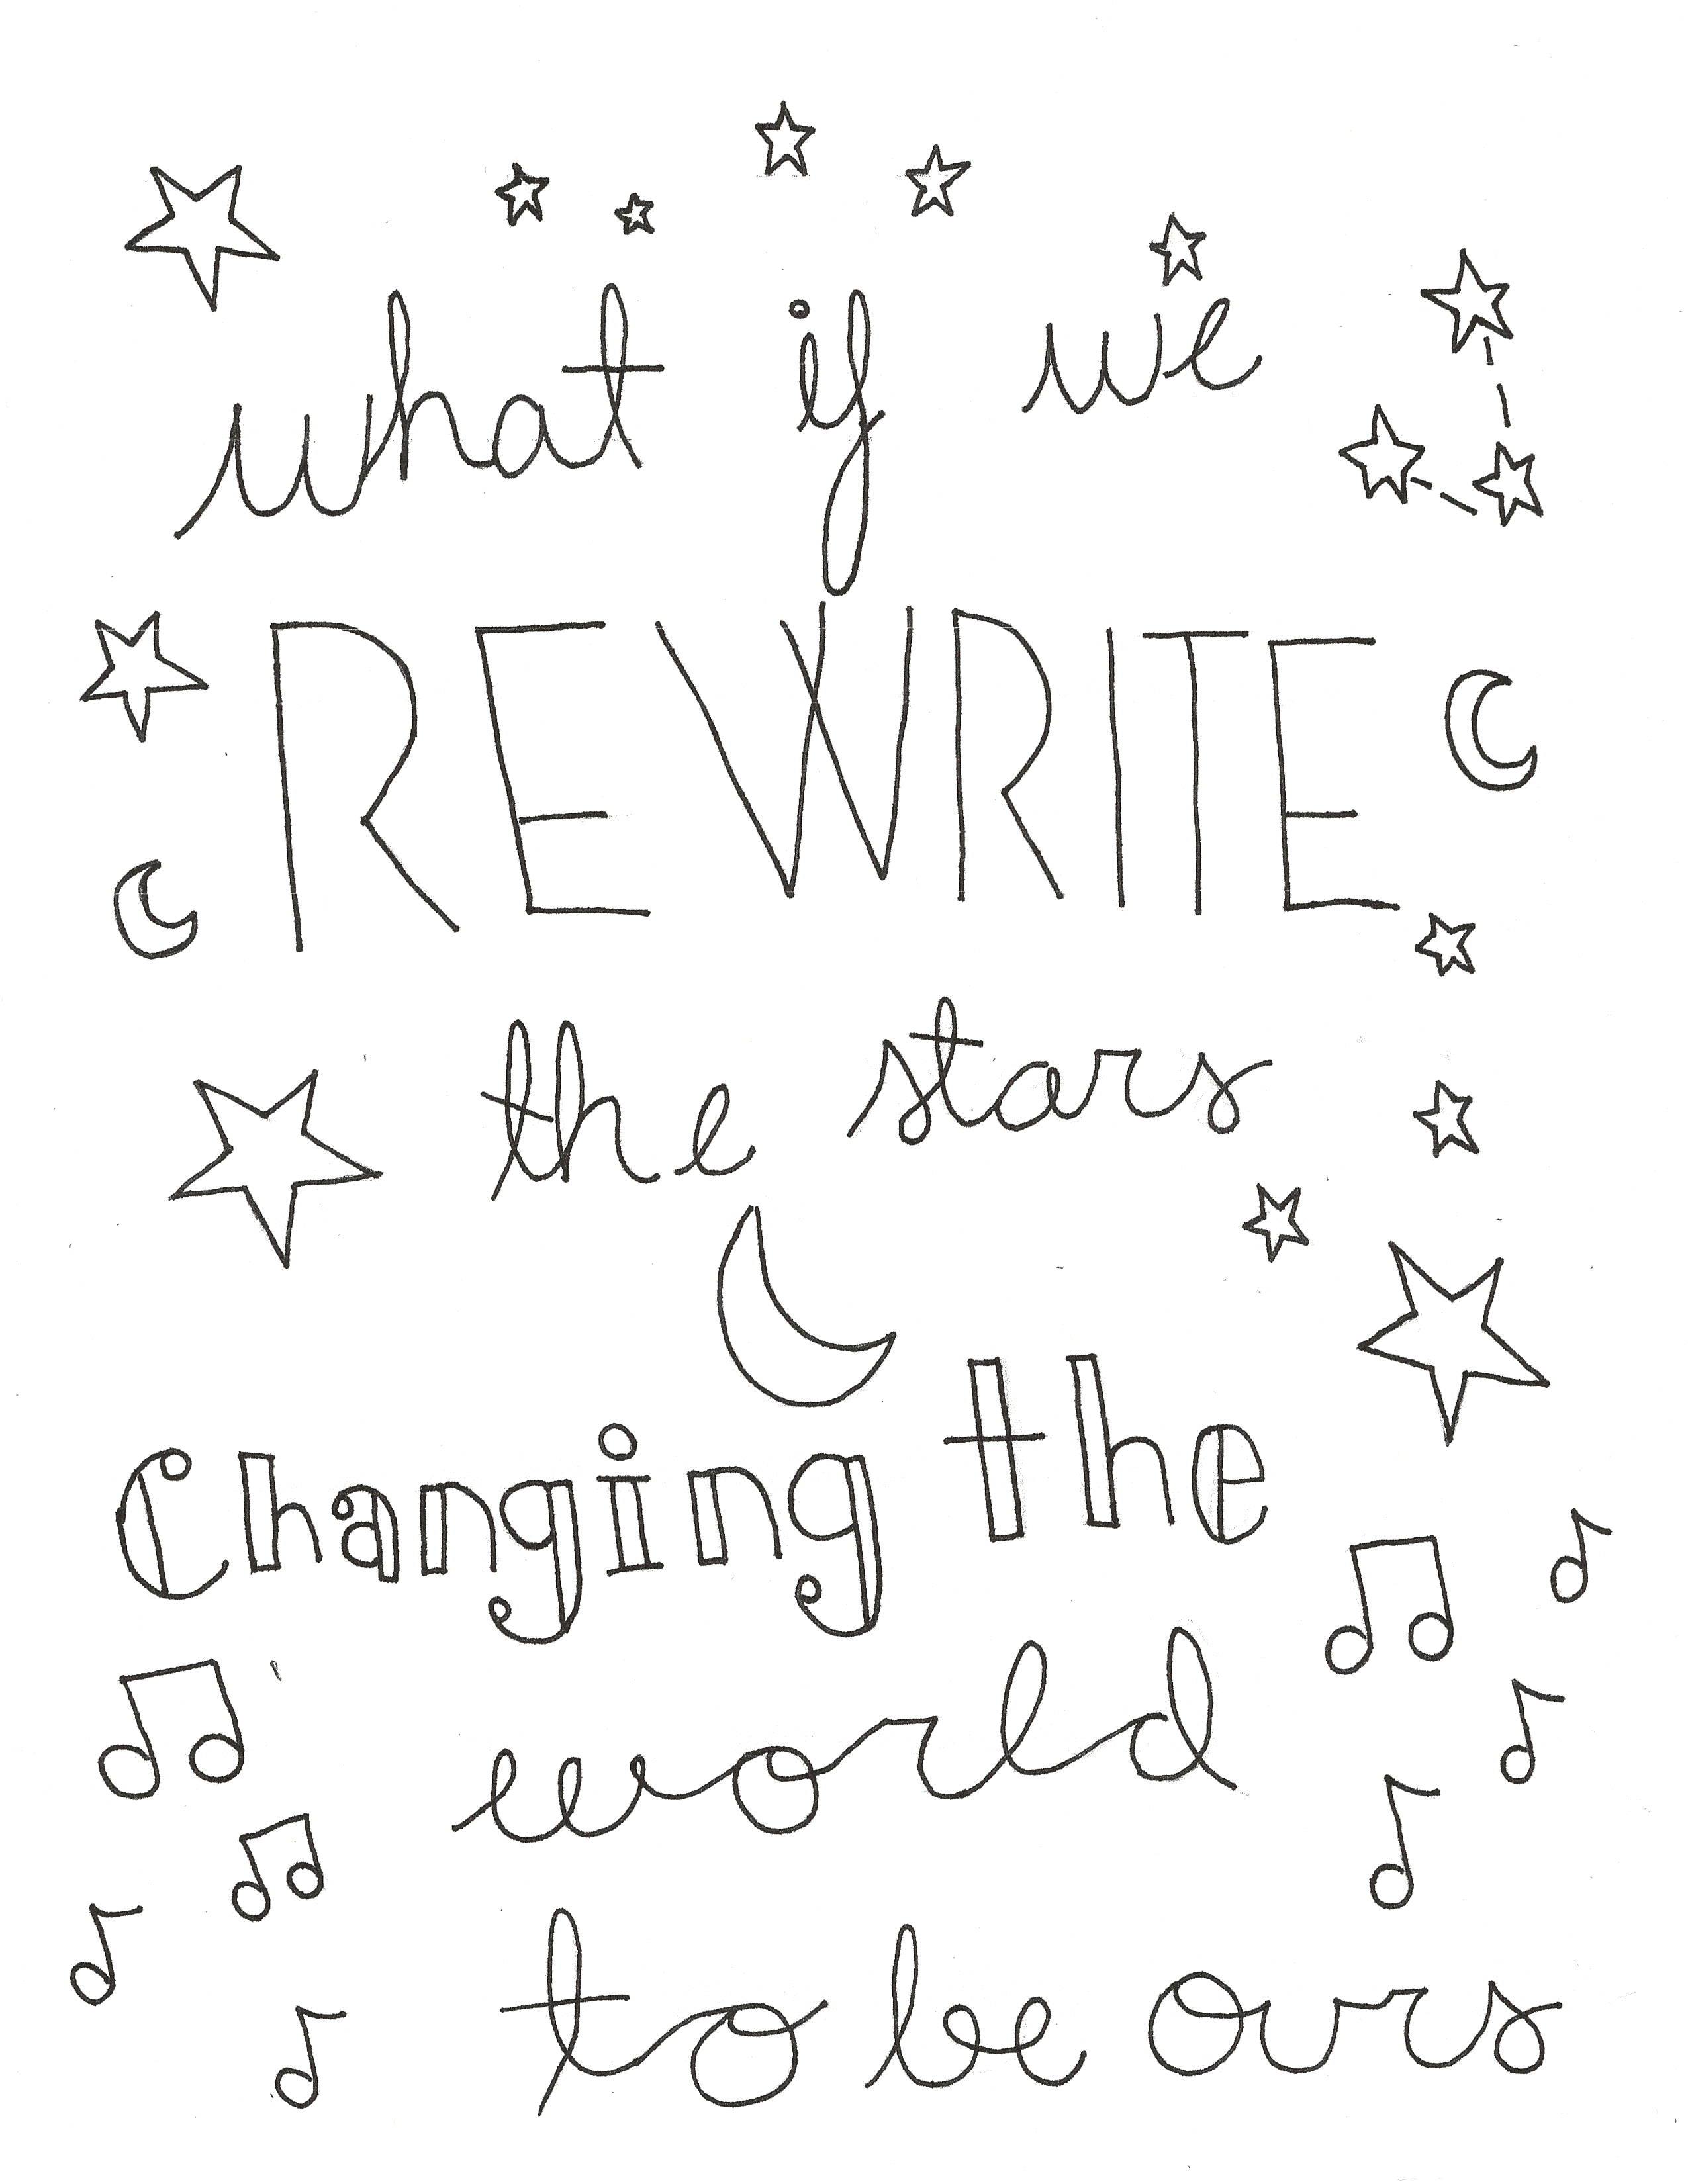 what if we
REWRITE
the stars
Changing the
world
to be ours